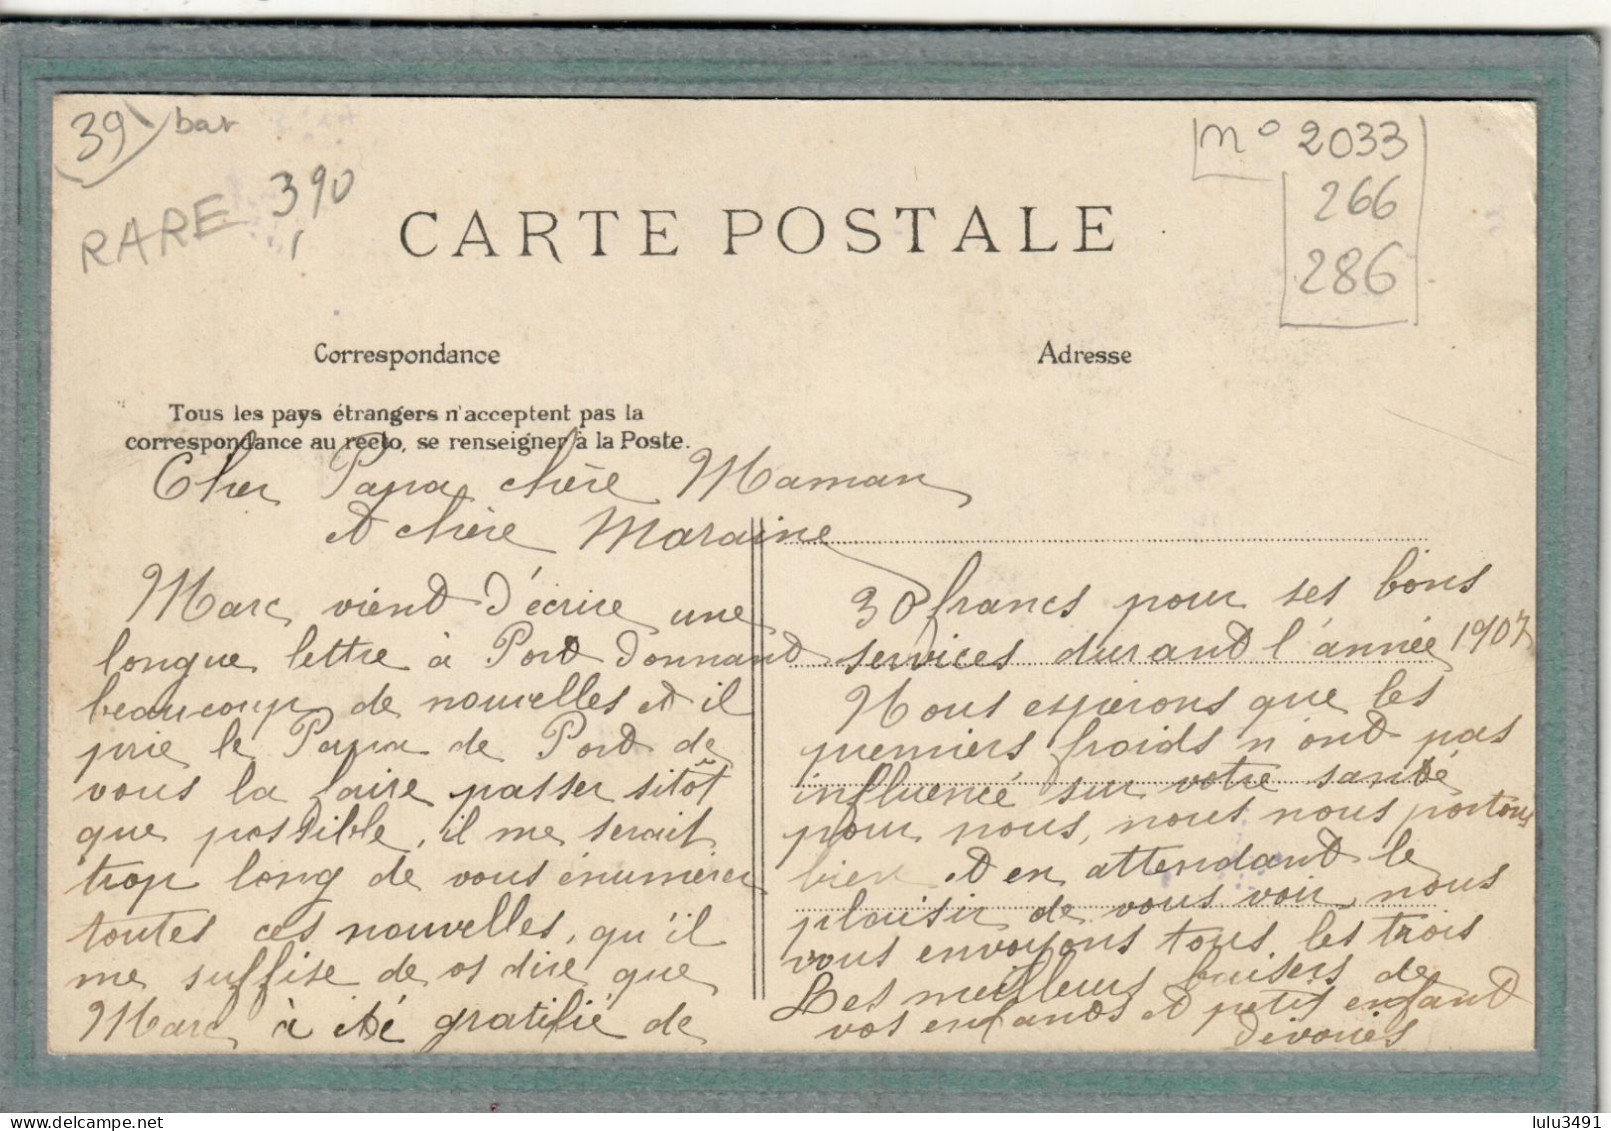 39 bar
RARE 390
n° 2033
266
286
CARTE POSTALE
Correspondance
Adresse
Tous les pays étrangers n'acceptent pas la
correspondance au recto, se renseigner à la Poste.
Cher Papa chère Maman
et chère Maraine
Marc vient d'écrire une
longue lettre à Port donnant
beaucoup de nouvelles et il
prie le Papa de Port de
vous la faire passer sitôt
que possible, il me serait
trop long de vous énumérer
toutes ces nouvelles, qu'il
me suffise de os dire que
Marc à été gratifié de
30 francs pour ses bons
services durant l'année 1907
Nous espérons que les
premiers froids n'ont pas
influencé sur votre santé
pour nous, nous nous portons
bien et en attendant le
plaisir de vous voir, nous
vous envoyons tous les trois
Les meilleurs baisers de
vos enfants et petit enfant
dévoués
lulu3491